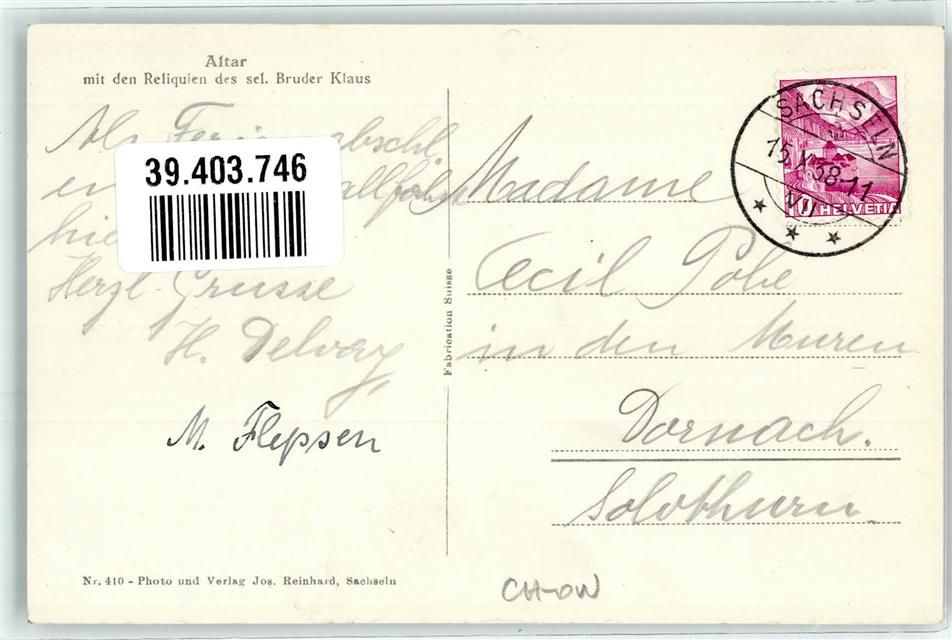 Altar
mit den Reliquien des sel. Bruder Klaus
Als abschl
39.403.746
Herzl. Grüsse
H. Delvoy
M. Flepsen
Nr. 410 - Photo und Verlag Jos. Reinhard, Sachseln
Fabrication Suisse
SACHSELN
15.V.38-11
HELVETIA
Madame
Cecil Pohe
in den Muren
Dornach.
Solothurn
CH-OW